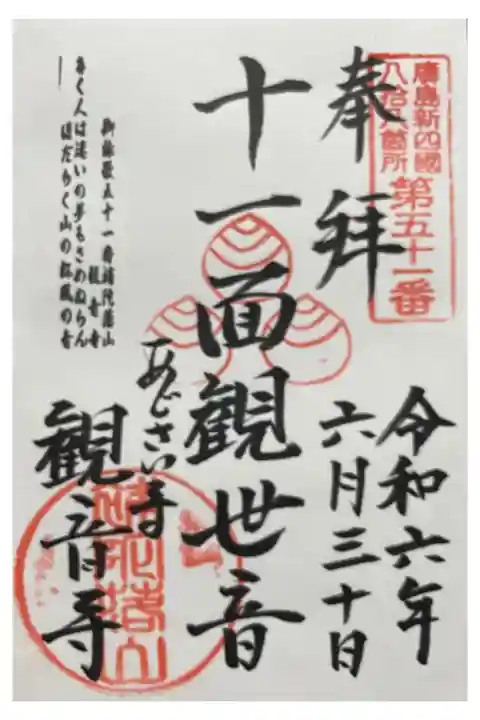 廣島新四國
八拾八箇所
第五十一番
奉拝
令和六年
六月三十日
十一面觀世音
あじさい寺
觀音寺
御詠歌五十一番補陀落山
観音寺
きく人は迷いの夢もさめぬらん
ほだらく山の松風の音
補陀落山